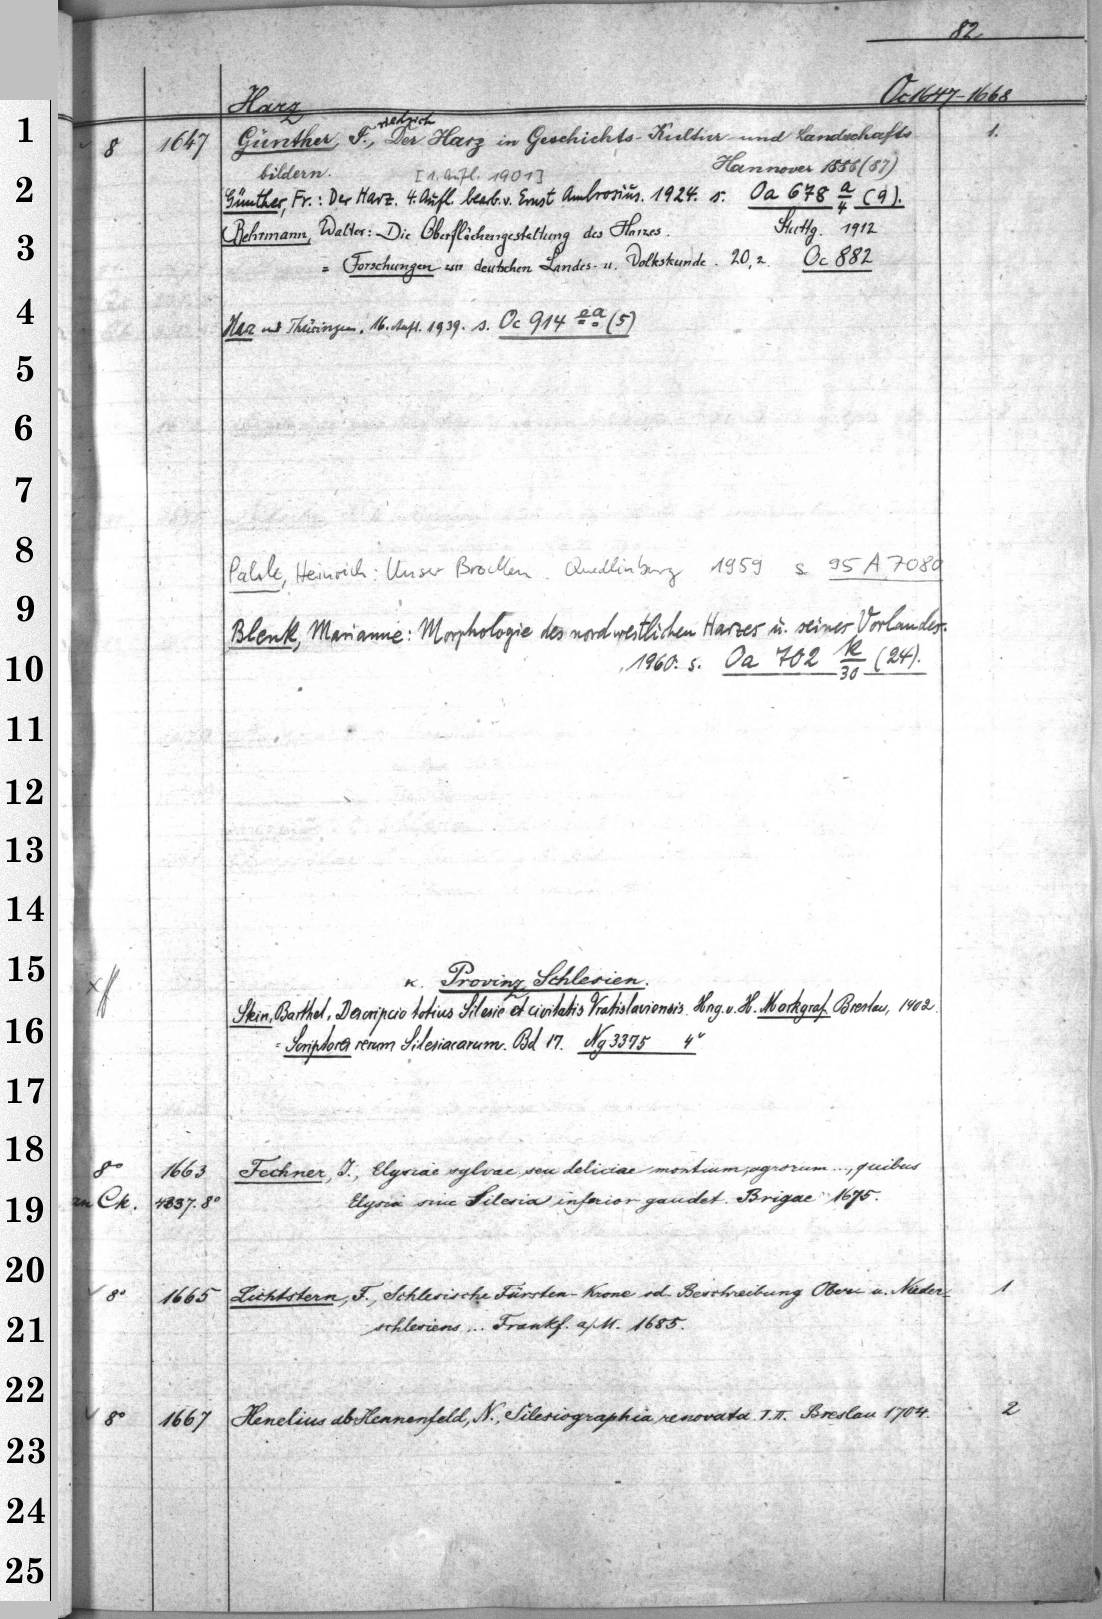 82
Harz Oc 1647-1668
1
8 1647 Günther, F., riedrich Der Harz in Geschichts- Kultur- und Landschafts 1.
bildern. [1. Aufl. 1901] Hannover 1886 (87)
2
Günther, Fr.: Der Harz. 4. Aufl. bearb. v. Ernst Ambrosius. 1924. s. Oa 678 a/4 (9).
3
Behrmann, Walter: Die Oberflächengestaltung des Harzes. Stuttg. 1912
= Forschungen zur deutschen Landes- u. Volkskunde. 20,2. Oc 882
4
Harz und Thüringen. 16. Aufl. 1939. s. Oc 914 ea (5)
5
6
7
8
Pahle, Heinrich: Unser Brocken. Quedlinburg 1959 s 95 A 7080
9
Blenk, Marianne: Morphologie des nordwestlichen Harzes u. seines Vorlandes.
10
1960. s. Oa 702 k/30 (24).
11
12
13
14
15
K. Provinz Schlesien.
Stein, Barthel, Descripcio totius Silesie et civitatis Vratislaviensis. Hrg. v. H. Markgraf Breslau, 1902.
16
= Scriptores rerum Silesiacarum. Bd 17. Ng 3375 4°
17
18
8° 1663 Fechner, J., Elysiae sylvae seu deliciae montium, agrorum ..., quibus
19
an Ck. 4337. 8° Elysia sive Silesia inferior gaudet. Brigae 1675.
20
8° 1665 Lichtstern, F., Schlesische Fürsten-Krone od. Beschreibung Ober u. Nieder- 1
21
schlesiens ... Frankf. a/M. 1685.
22
8° 1667 Henelius ab Hennenfeld, N., Silesiographia renovata. T.II. Breslau 1704. 2
23
24
25